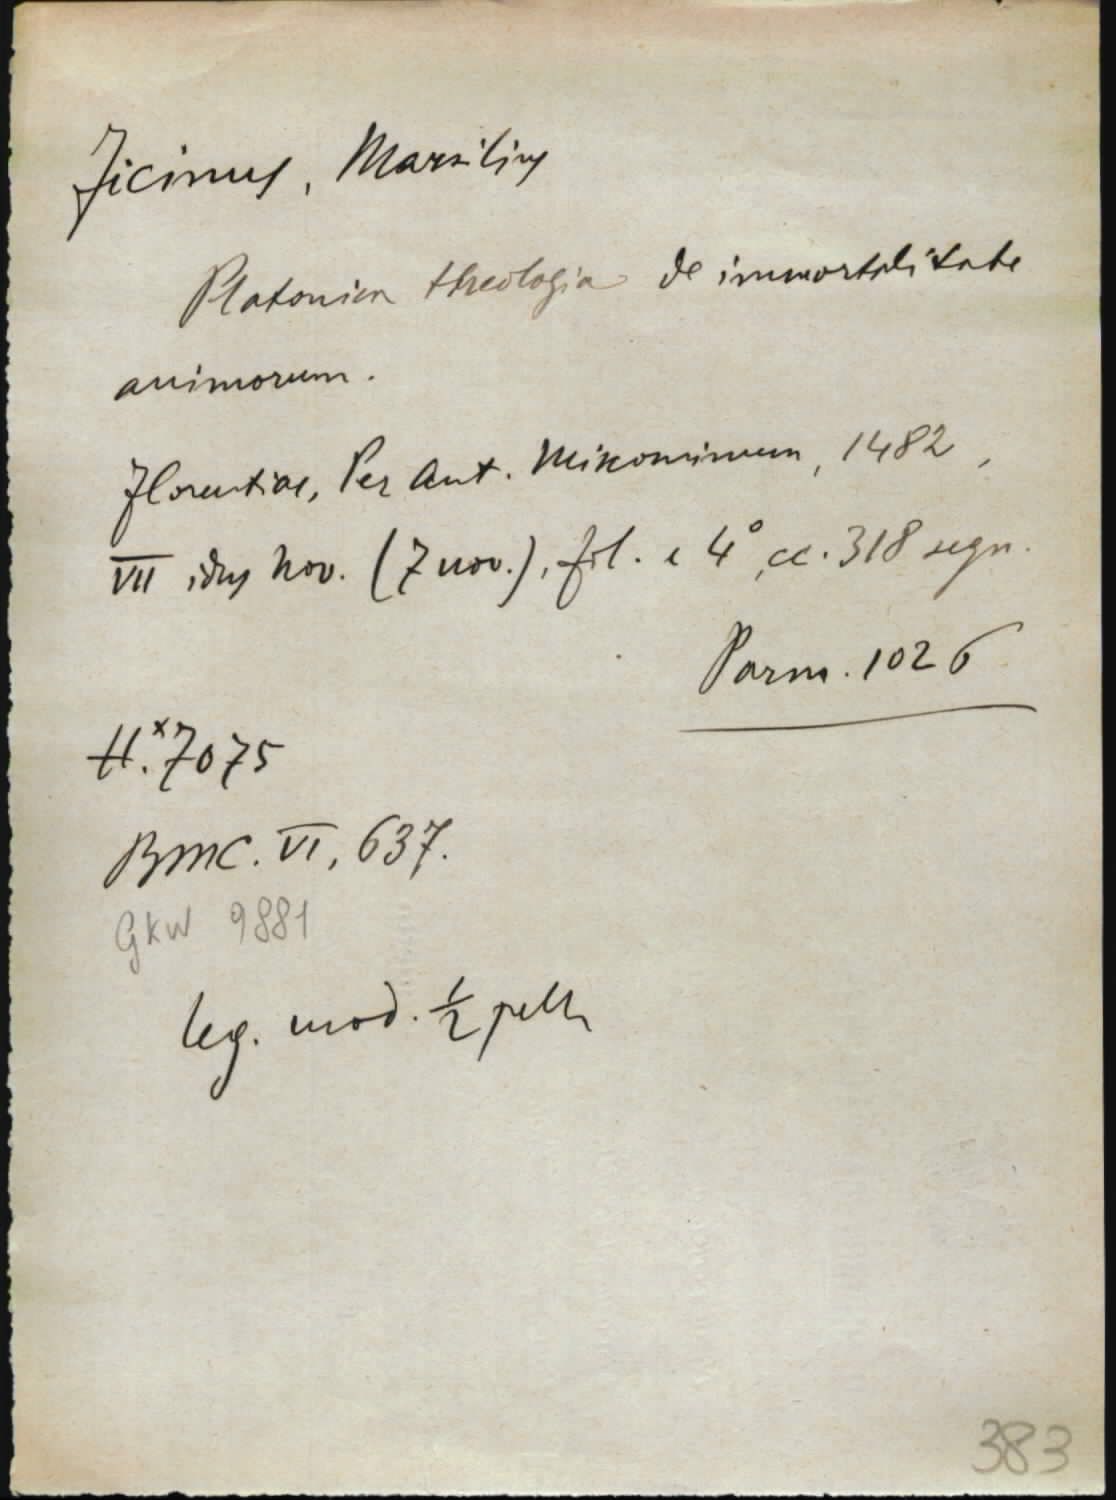 Ficinus, Marsilius
Platonica theologia de immortalitate
animorum.
Florentiae, Per Ant. Miscominum, 1482,
VII idus Nov. (7 nov.), fol. e 4°, cc. 318 segn.
Parm. 1026
H.x7075
BMC. VI, 637.
GKW 9881
leg. mod. 1/2 pelle
383